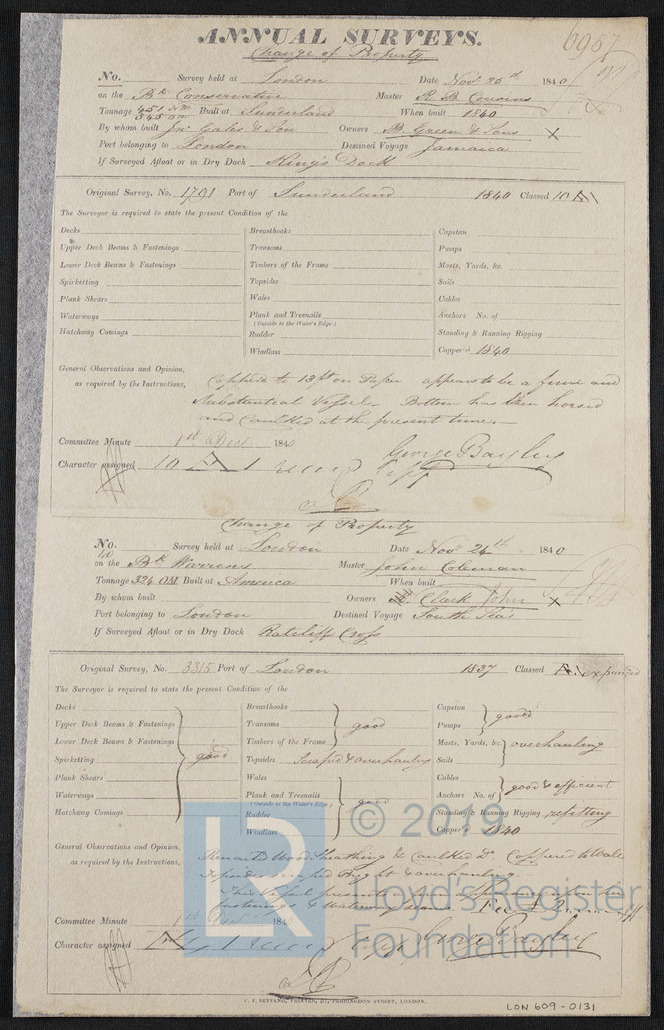 6967
ANNUAL SURVEYS.
Change of Property
No. Survey held at London Date Novr 26th 1840
on the Bk Conservative Master R B Cousins
Tonnage 451 N.M. 545 O.M. Built at Sunderland When built 1840
By whom built Jno Gales & Son Owners Green & Sons X
Port belonging to London Destined Voyage Jamaica
If Surveyed Afloat or in Dry Dock King's Dock
Original Survey, No. 1791 Port of Sunderland 1840 Classed 10 A 1
The Surveyor is required to state the present Condition of the
Decks Breasthooks Capstan
Upper Deck Beams & Fastenings Transoms Pumps
Lower Deck Beams & Fastenings Timbers of the Frame Masts, Yards, &c.
Spirketting Topsides Sails
Plank Shears Wales Cables
Waterways Plank and Treenails Anchors No. of
(Outside to the Water's Edge.)
Hatchway Comings Rudder Standing & Running Rigging
Windlass Copper'd 1840
General Observations and Opinion,
as required by the Instructions,
Coppered to 13 ft on Paper appears to be a firm and
Substantial Vessel. Bottom has been horsed
and Caulked at the present time.
Committee Minute 1st Decr 1840
Character assigned 10 A 1 George Bayley
Change of Property
No. 40 Survey held at London Date Novr 24th 1840
on the Bk Warrens Master John Coleman
Tonnage 324 OM Built at America When built
By whom built Owners Clark John X
Port belonging to London Destined Voyage South Seas
If Surveyed Afloat or in Dry Dock Ratcliff Cross
Original Survey, No. 3315 Port of London 1837 Classed expunged
The Surveyor is required to state the present Condition of the
Decks Breasthooks Capstan
Upper Deck Beams & Fastenings Transoms good Pumps good
Lower Deck Beams & Fastenings Timbers of the Frame Masts, Yards, &c. overhauling
Spirketting good Topsides Scraped & overhauling Sails
Plank Shears Wales Cables
Waterways Plank and Treenails good Anchors No. of good & efficient
(Outside to the Water's Edge.)
Hatchway Comings Rudder Standing & Running Rigging refitting
Windlass Copper'd 1840
General Observations and Opinion,
as required by the Instructions,
Wood Sheathing & Caulked Do Coppered to Wales
Topsides scraped bright & overhauling
This Vessel
fastenings &
Committee Minute 1st Decr 1840
Character assigned George Bayley
C. F. SEYFANG, PRINTER, 57, FARRINGDON STREET, LONDON.
LON 609-0131
LR
© 2019
Lloyd's Register
Foundation